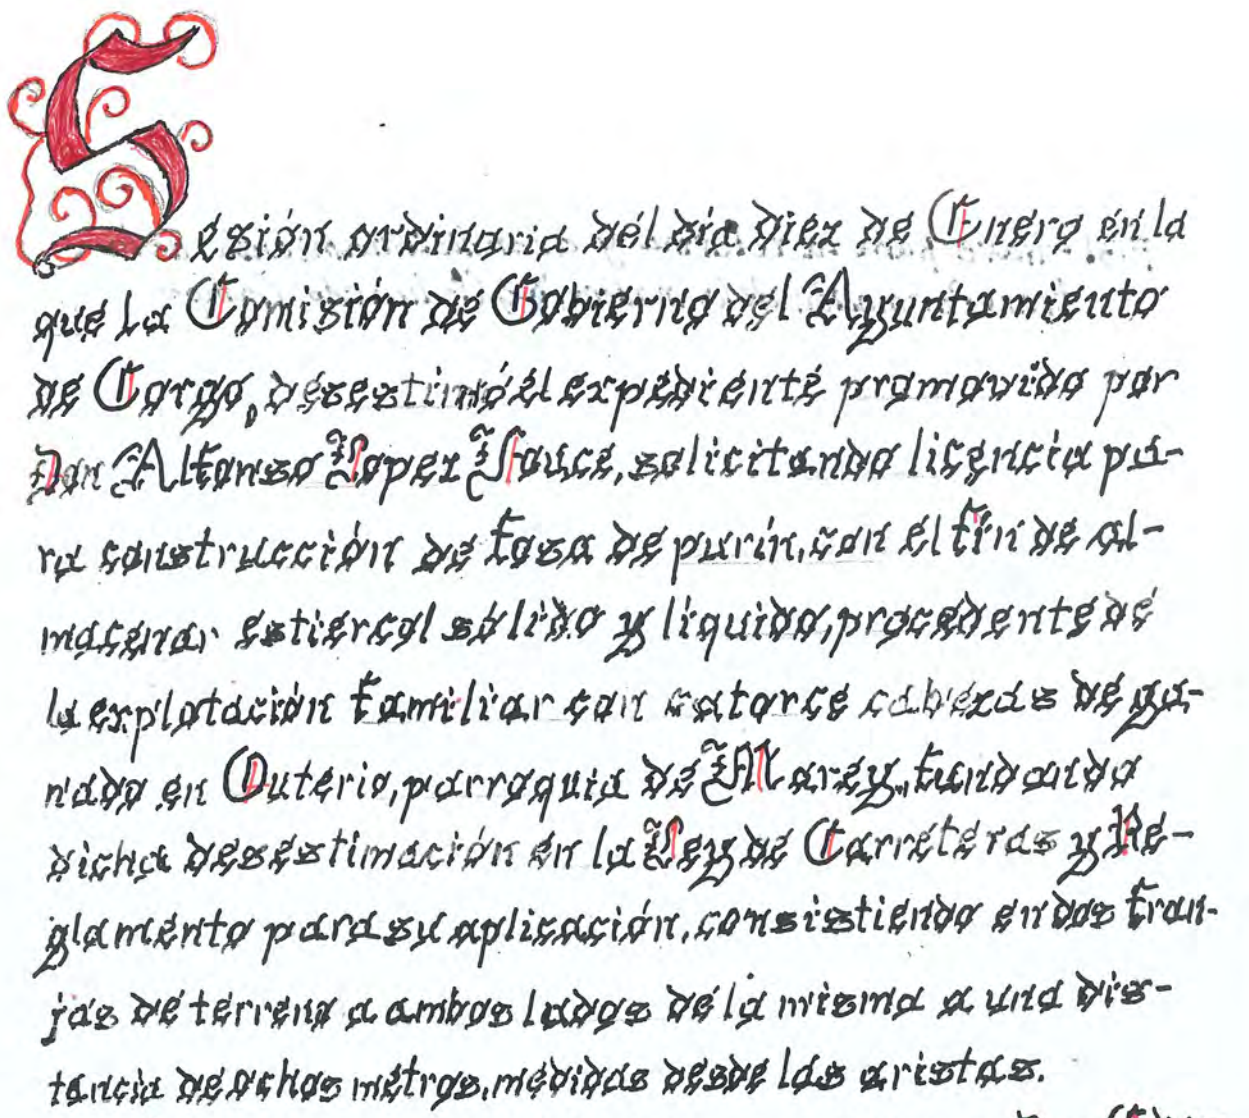 Sesión ordinaria del día diez de Enero en la
que la Comisión de Gobierno del Ayuntamiento
de Corgo, desestimó el expediente promovido por
Don Alfonso Lopez Fouce, solicitando licencia pa-
ra construcción de fosa de purín, con el fín de al-
macenar estiercol sólido y líquido, procedente de
la explotación familiar con catorce cabezas de ga-
nado en Outerio, parroquia de Marey, fundando
dicha desestimación en la Ley de Carreteras y Re-
glamento para su aplicación, consistiendo en dos fran-
jas de terreno a ambos lados de la misma a una dis-
tancia de ochos metros, medidas desde las aristas.